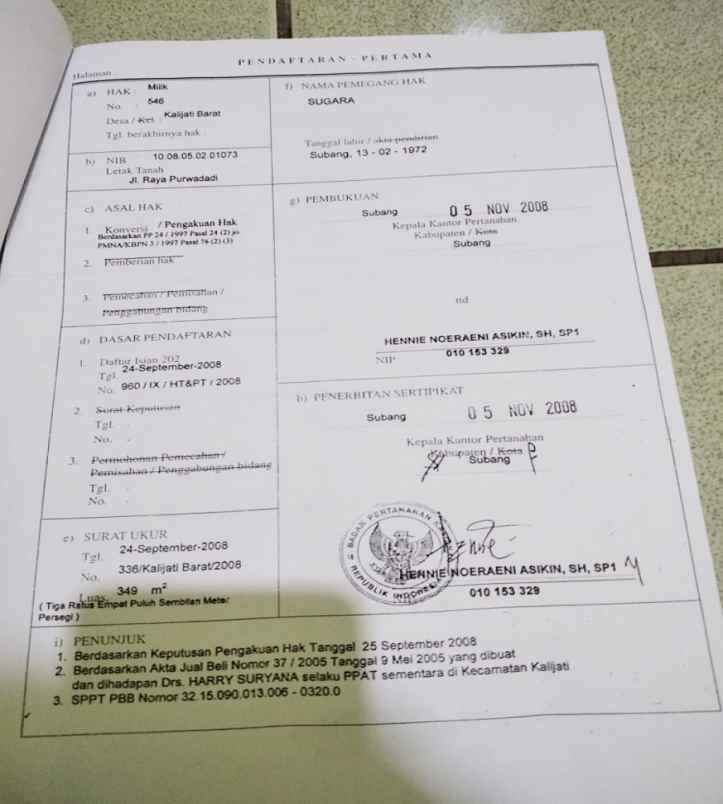 PENDAFTARAN - PERTAMA
Halaman
a) HAK : Milik
No. : 546
Desa / Kel. Kalijati Barat
Tgl. berakhirnya hak :
b) NIB 10.08.05.02.01073
Letak Tanah
Jl. Raya Purwadadi
c) ASAL HAK
1. Konversi / Pengakuan Hak
Berdasarkan PP 24 / 1997 Pasal 24 (2) jo
PMNA/KBPN 3 / 1997 Pasal 76 (2) (3)
2. Pemberian hak
3. Pemecahan / Pemisahan /
Penggabungan bidang
d) DASAR PENDAFTARAN
1. Daftar Isian 202
Tgl. 24-September-2008
No. 960 / IX / HT&PT / 2008
2. Surat Keputusan
Tgl. .
No. .
3. Permohonan Pemecahan /
Pemisahan / Penggabungan bidang
Tgl. .
No. .
e) SURAT UKUR
Tgl. 24-September-2008
No. 336/Kalijati Barat/2008
Luas. 349 m²
( Tiga Ratus Empat Puluh Sembilan Meter
Persegi )
f) NAMA PEMEGANG HAK
SUGARA
Tanggal lahir / akta pendirian
Subang, 13 - 02 - 1972
g) PEMBUKUAN
Subang 05 NOV 2008
Kepala Kantor Pertanahan
Kabupaten / Kota
Subang
nd
HENNIE NOERAENI ASIKIN, SH, SP1
NIP 010 153 329
h) PENERBITAN SERTIPIKAT
Subang 05 NOV 2008
Kepala Kantor Pertanahan
Kabupaten / Kota
Subang
BADAN PERTANAHAN
REPUBLIK INDONESIA
HENNIE NOERAENI ASIKIN, SH, SP1
010 153 329
i) PENUNJUK
1. Berdasarkan Keputusan Pengakuan Hak Tanggal 25 September 2008
2. Berdasarkan Akta Jual Beli Nomor 37 / 2005 Tanggal 9 Mei 2005 yang dibuat
dan dihadapan Drs. HARRY SURYANA selaku PPAT sementara di Kecamatan Kalijati
3. SPPT PBB Nomor 32.15.090.013.006 - 0320.0